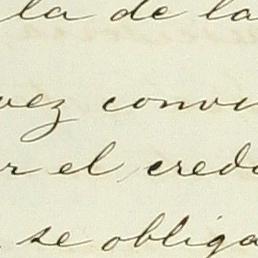 la de la
vez conve
r el credo
se obliga